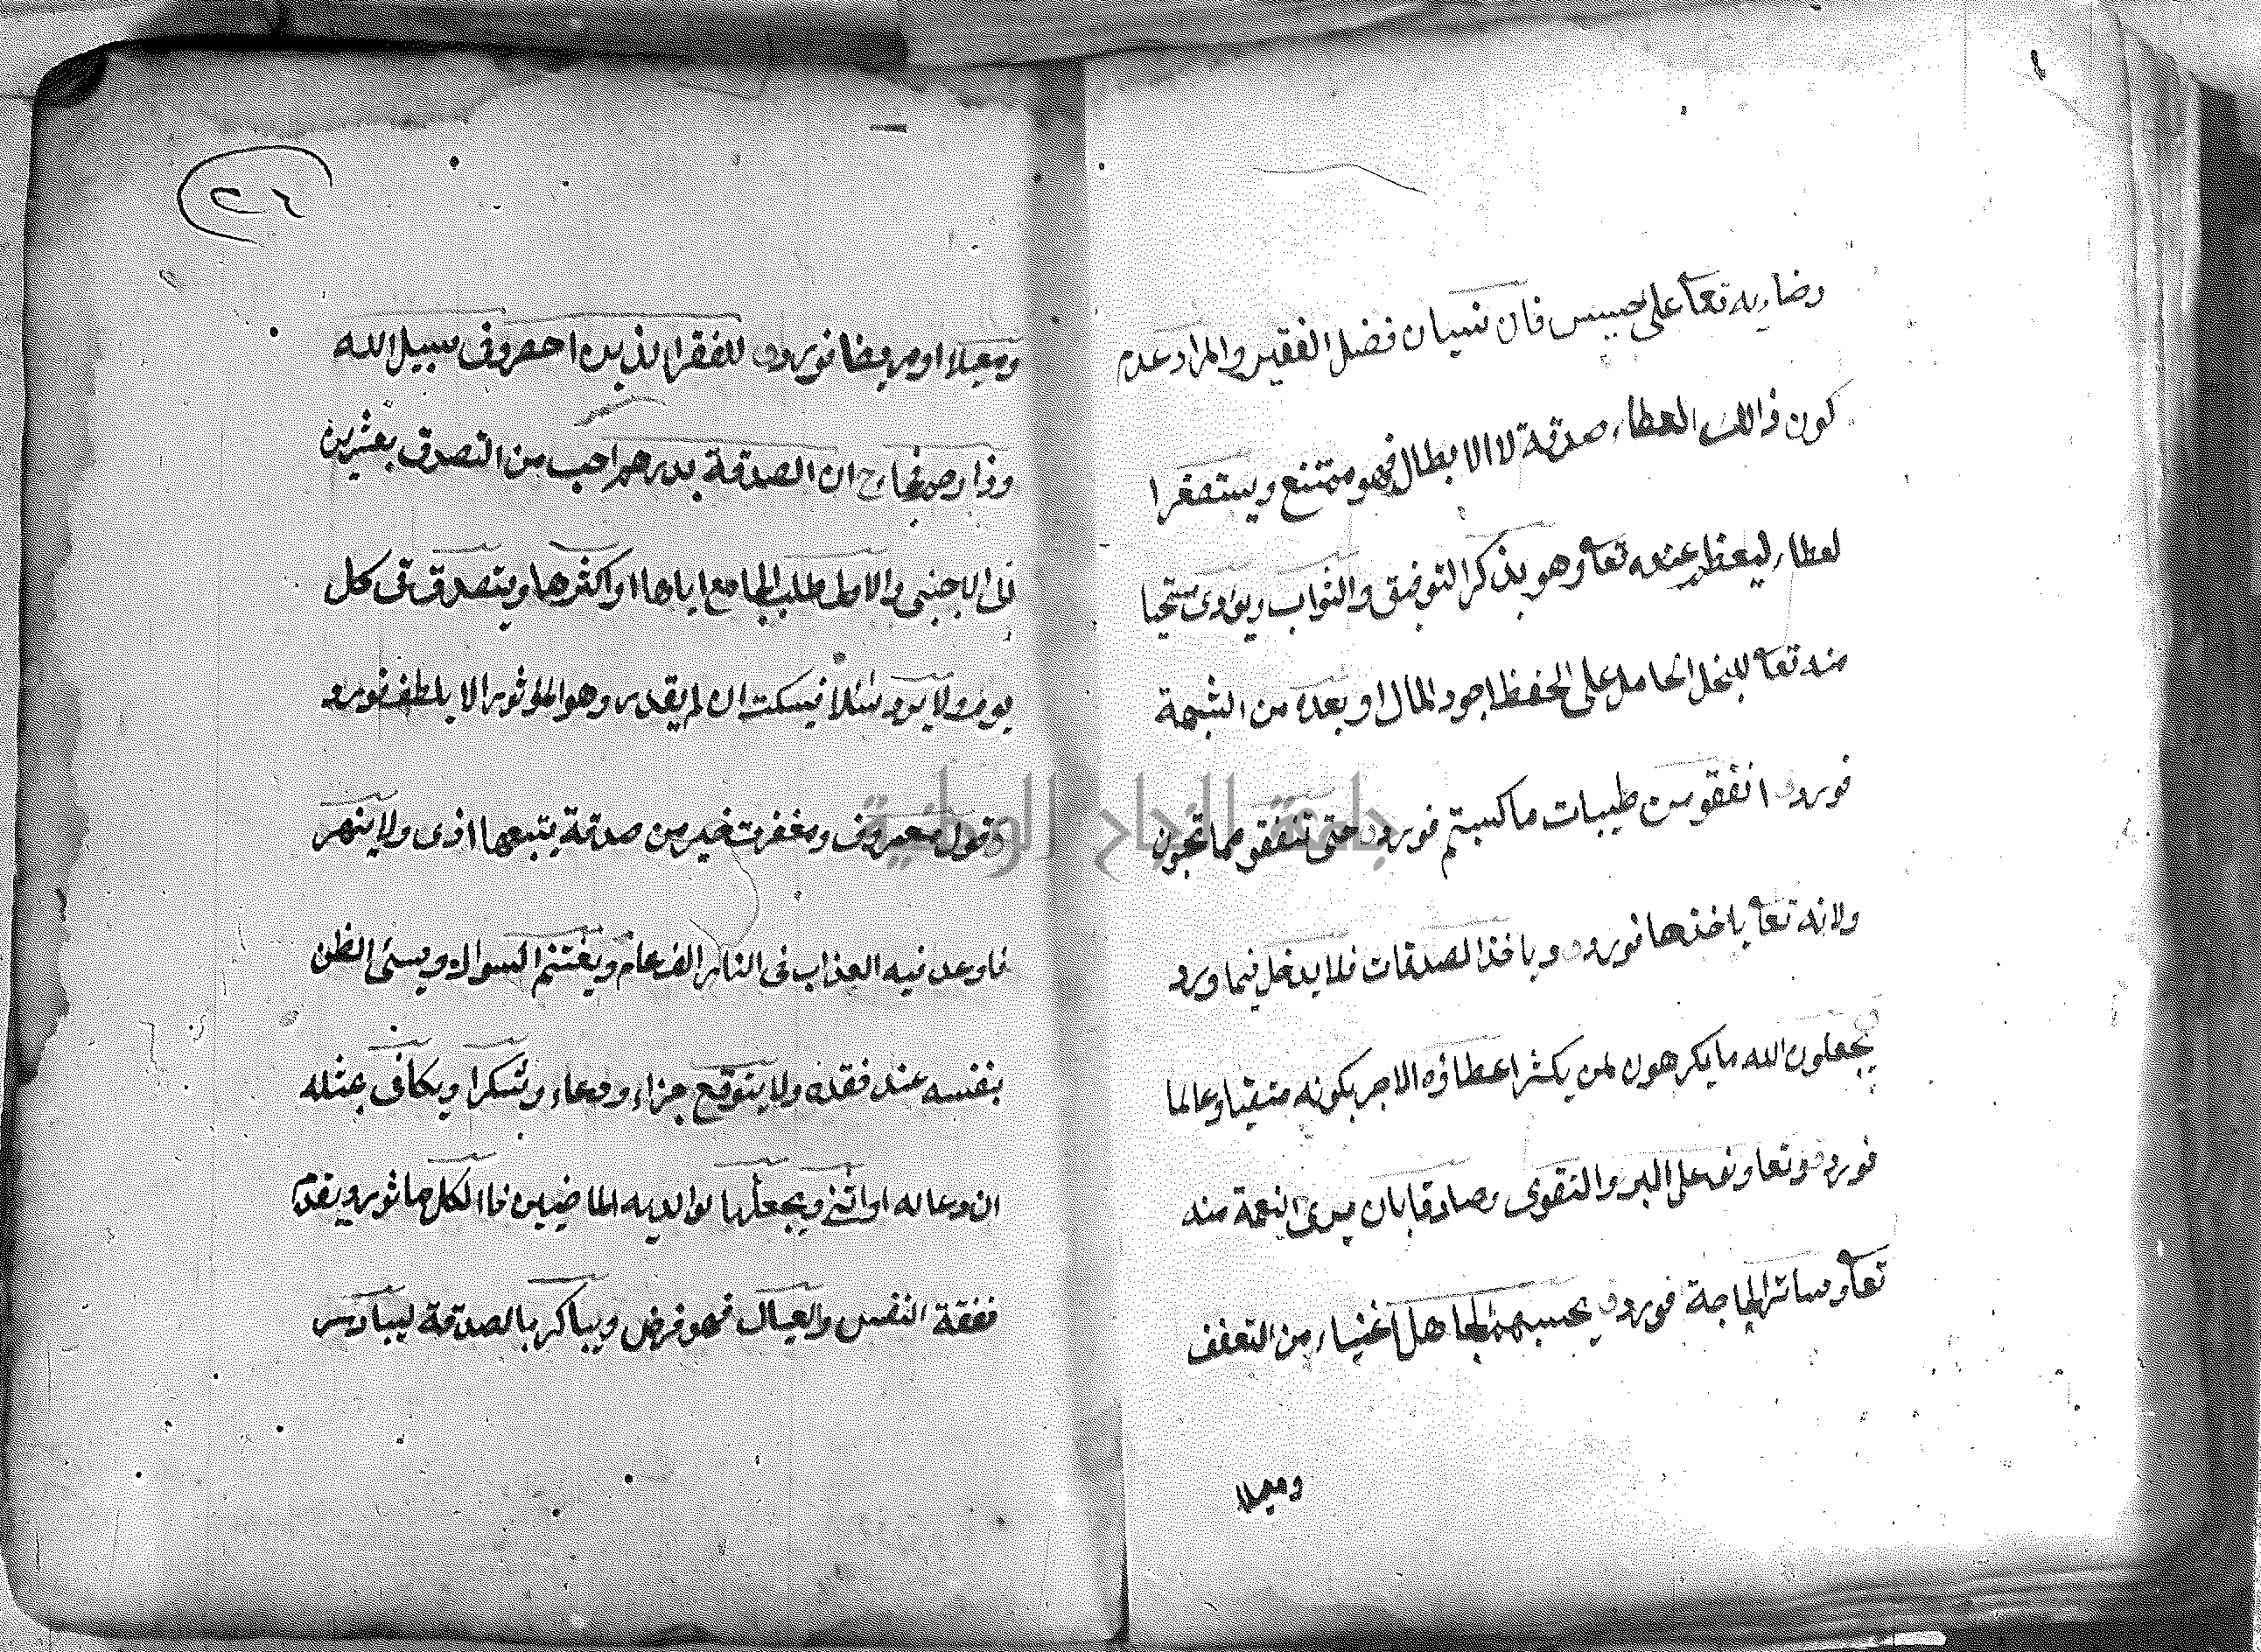 وضاربه تعا على حبيس فان نسيان فضل الفقير والمراد عدم
كون ذالك العطاء صدقة لا الابطال فهو ممتنع ويستصغرا
لعطاء ليعظم عنده تعا وهو بذكر التوفيق والثواب ويؤدى مستحيا
منه تعا للبخل الحامل على الحفظ اجود المال او بعده من الشبهة
فورد انفقو من طيبات ما كسبتم فورد حتى تنفقو مما تحبون
ولانه تعا ياخذها فورد وياخذ الصدقات فلا يدخل فيما ورد
يجعلون الله ما يكرهون لمن يكثر اعطاؤه الاجر بكونه متقيا وعالما
فورد وتعاونو على البر والتقوى وصادقا بان يرى النعمة منه
تعا وساتر الحاجة فورد يحسبهم الجاهل اغنياء من التعفف
ومعيلا
٢٤
ومعيلا او مريضا فورد للفقرا الذين احصرو فى سبيل الله
وذا رحم ان الصدقة بدرهم احب من التصدق بعشرين
فى الاجنبى والاولى طلب الجامع اياها او اكثرها ويتصدق فى كل
يوم ولا يرد سئلا فيسكت ان لم يقدر وهو الماثور الا يلطف فورد
قول معروف ومغفرت خير من صدقة يتبعها اذى ولا ينهر
فاوعد فيه العذاب فى النار الف عام ويغتنم السوال ويسئى الظن
بنفسه عند فقده ولا يتوقع جزاء ودعاء وشكرا ويكافى بمثله
ان دعا له او اثنى ويجعلها لوالديه الماضيين فاالكل ماثور ويقدم
نفقة النفس والعيال فهو فرض ويباكر بالصدقة ليبادر
جامعة النجاح الوطنية